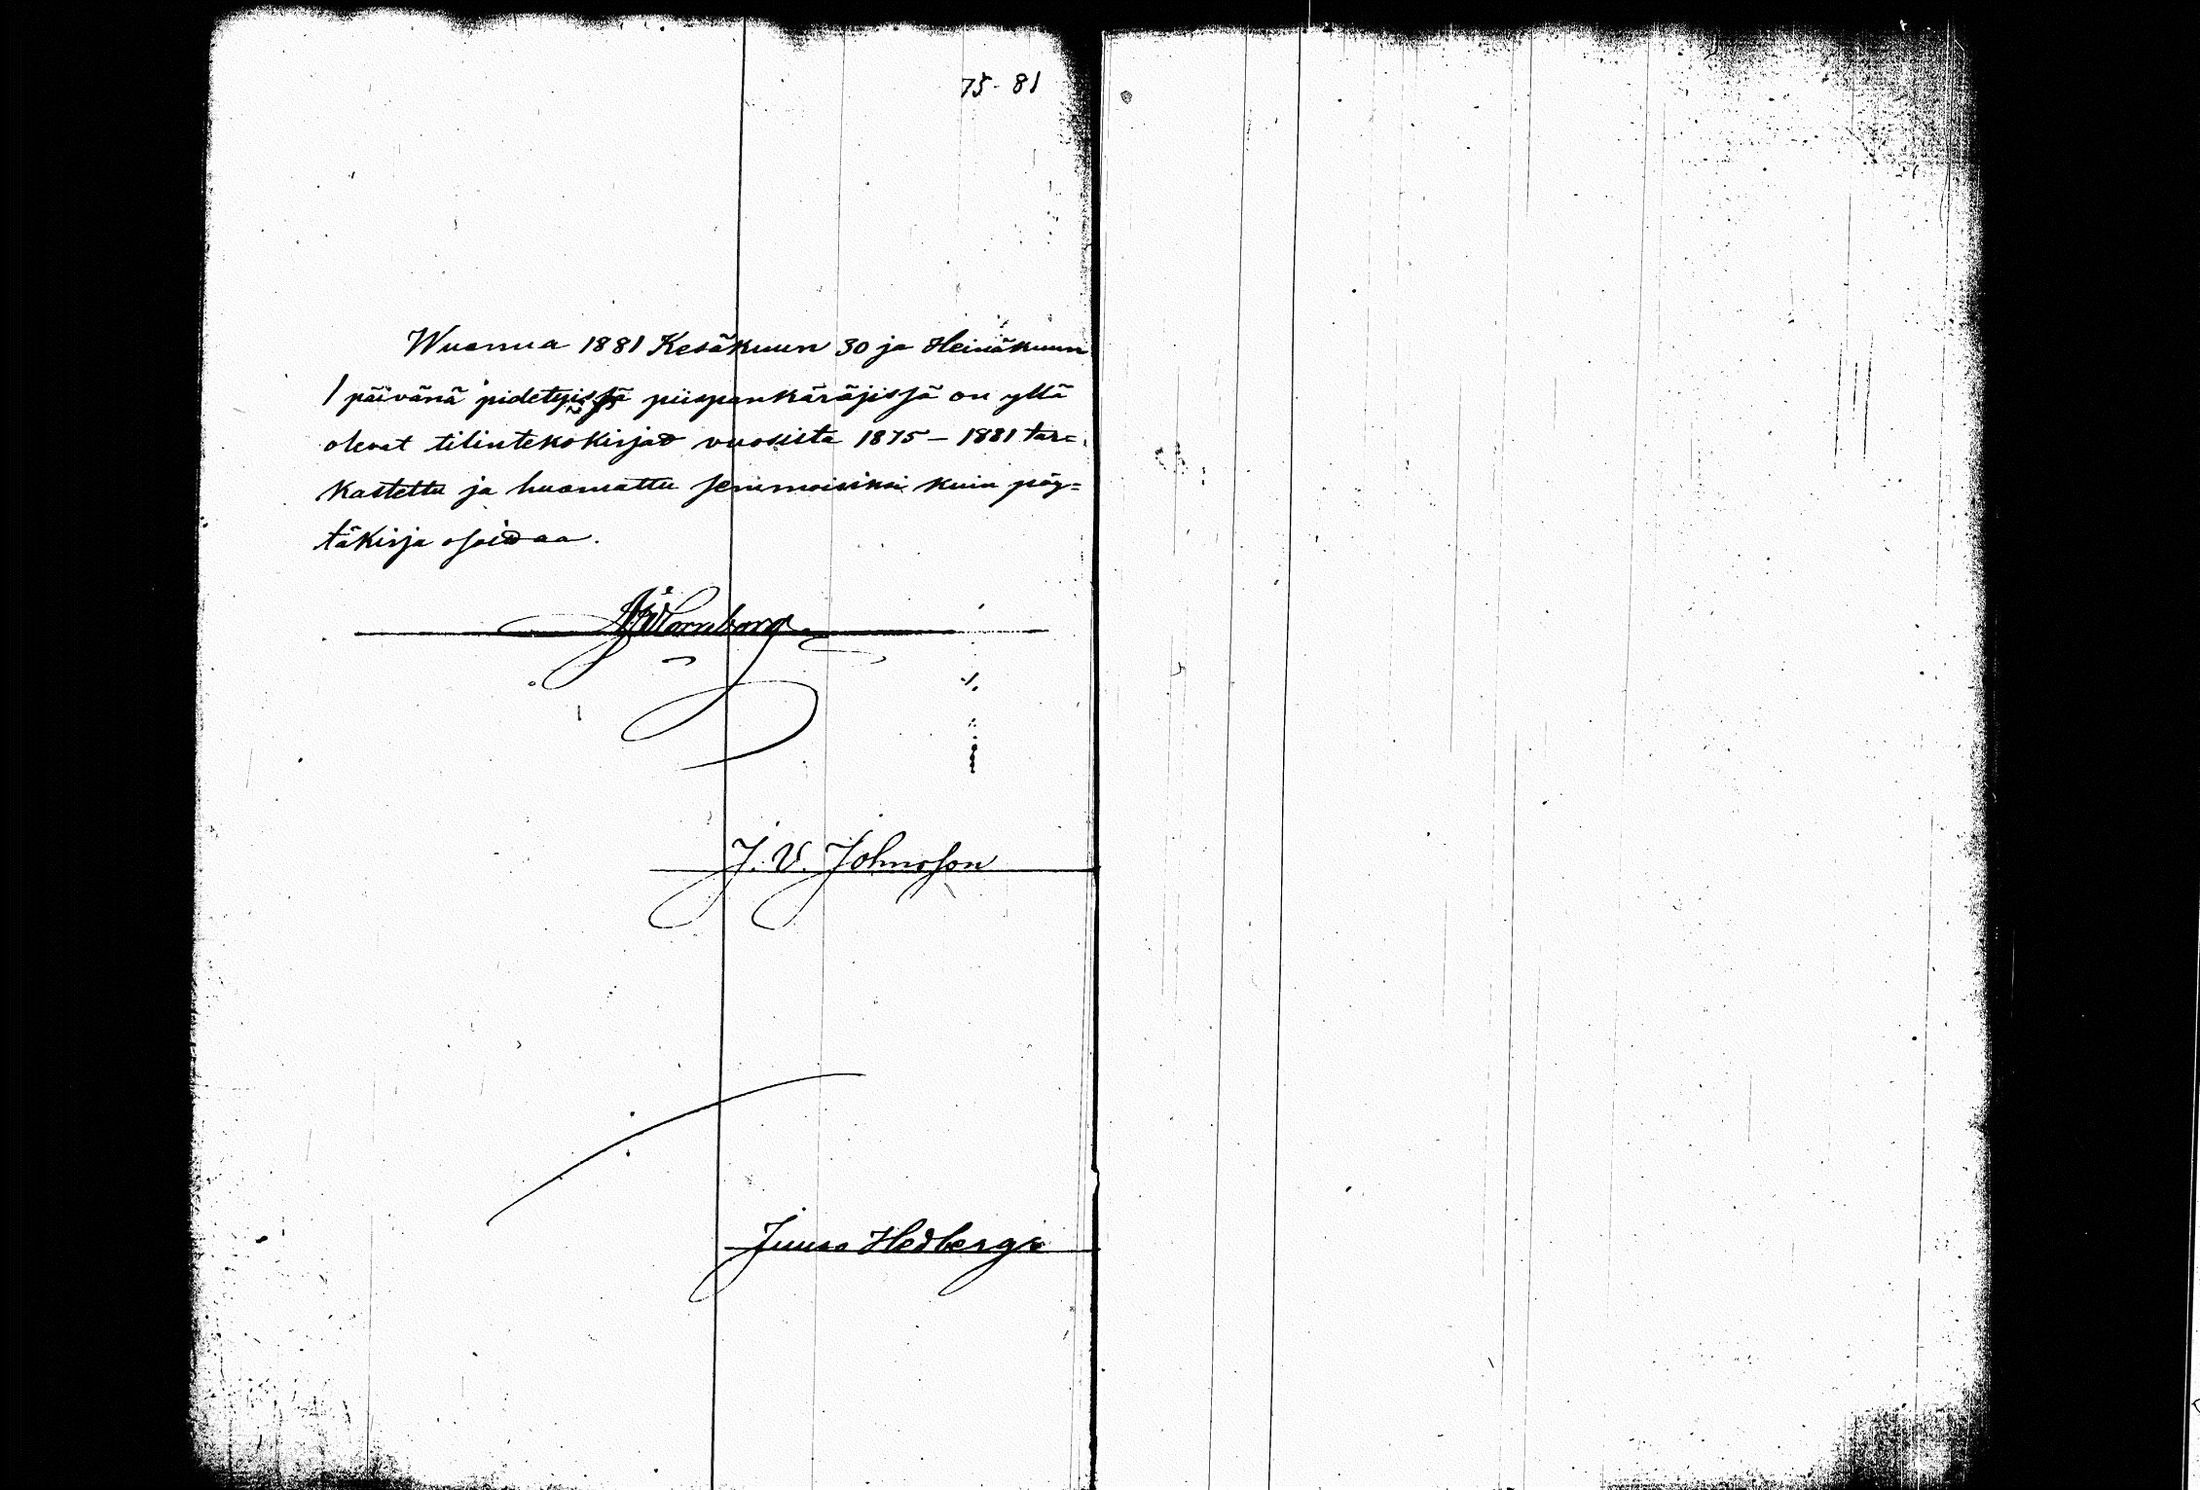 75-81
Wuonna 1881 Kesäkuun 30 ja Heinäkuun
1 päivänä pidetyissä piispankäräjissä on yllä
olevat tilintekokirjat vuosista 1875-1881 tar=
kastettu ja huomattu semmoisiksi kuin pöy=
täkirja osoittaa.
J. V. Johnsson
Juuso Hedberg